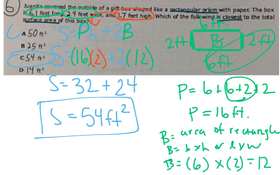 6 Juanita covered the outside of a gift box shaped like a rectangular prism with paper. The box
is 6.1 feet long, 2.4 feet wide, and 1.7 feet high. Which of the following is closest to the total
surface area of this box?
A 50 ft²
B 25 ft²
C 54 ft²
D 14 ft²
S = Ph + 2B
S=(16)(2)+2(12)
S= 32 + 24
S= 54ft²
6ft
2ft B 2ft
6ft
P = 6+6+2+2
P = 16 ft.
B= area of rectangle
B= b x h or l x w
B= (6) x (2) = 12